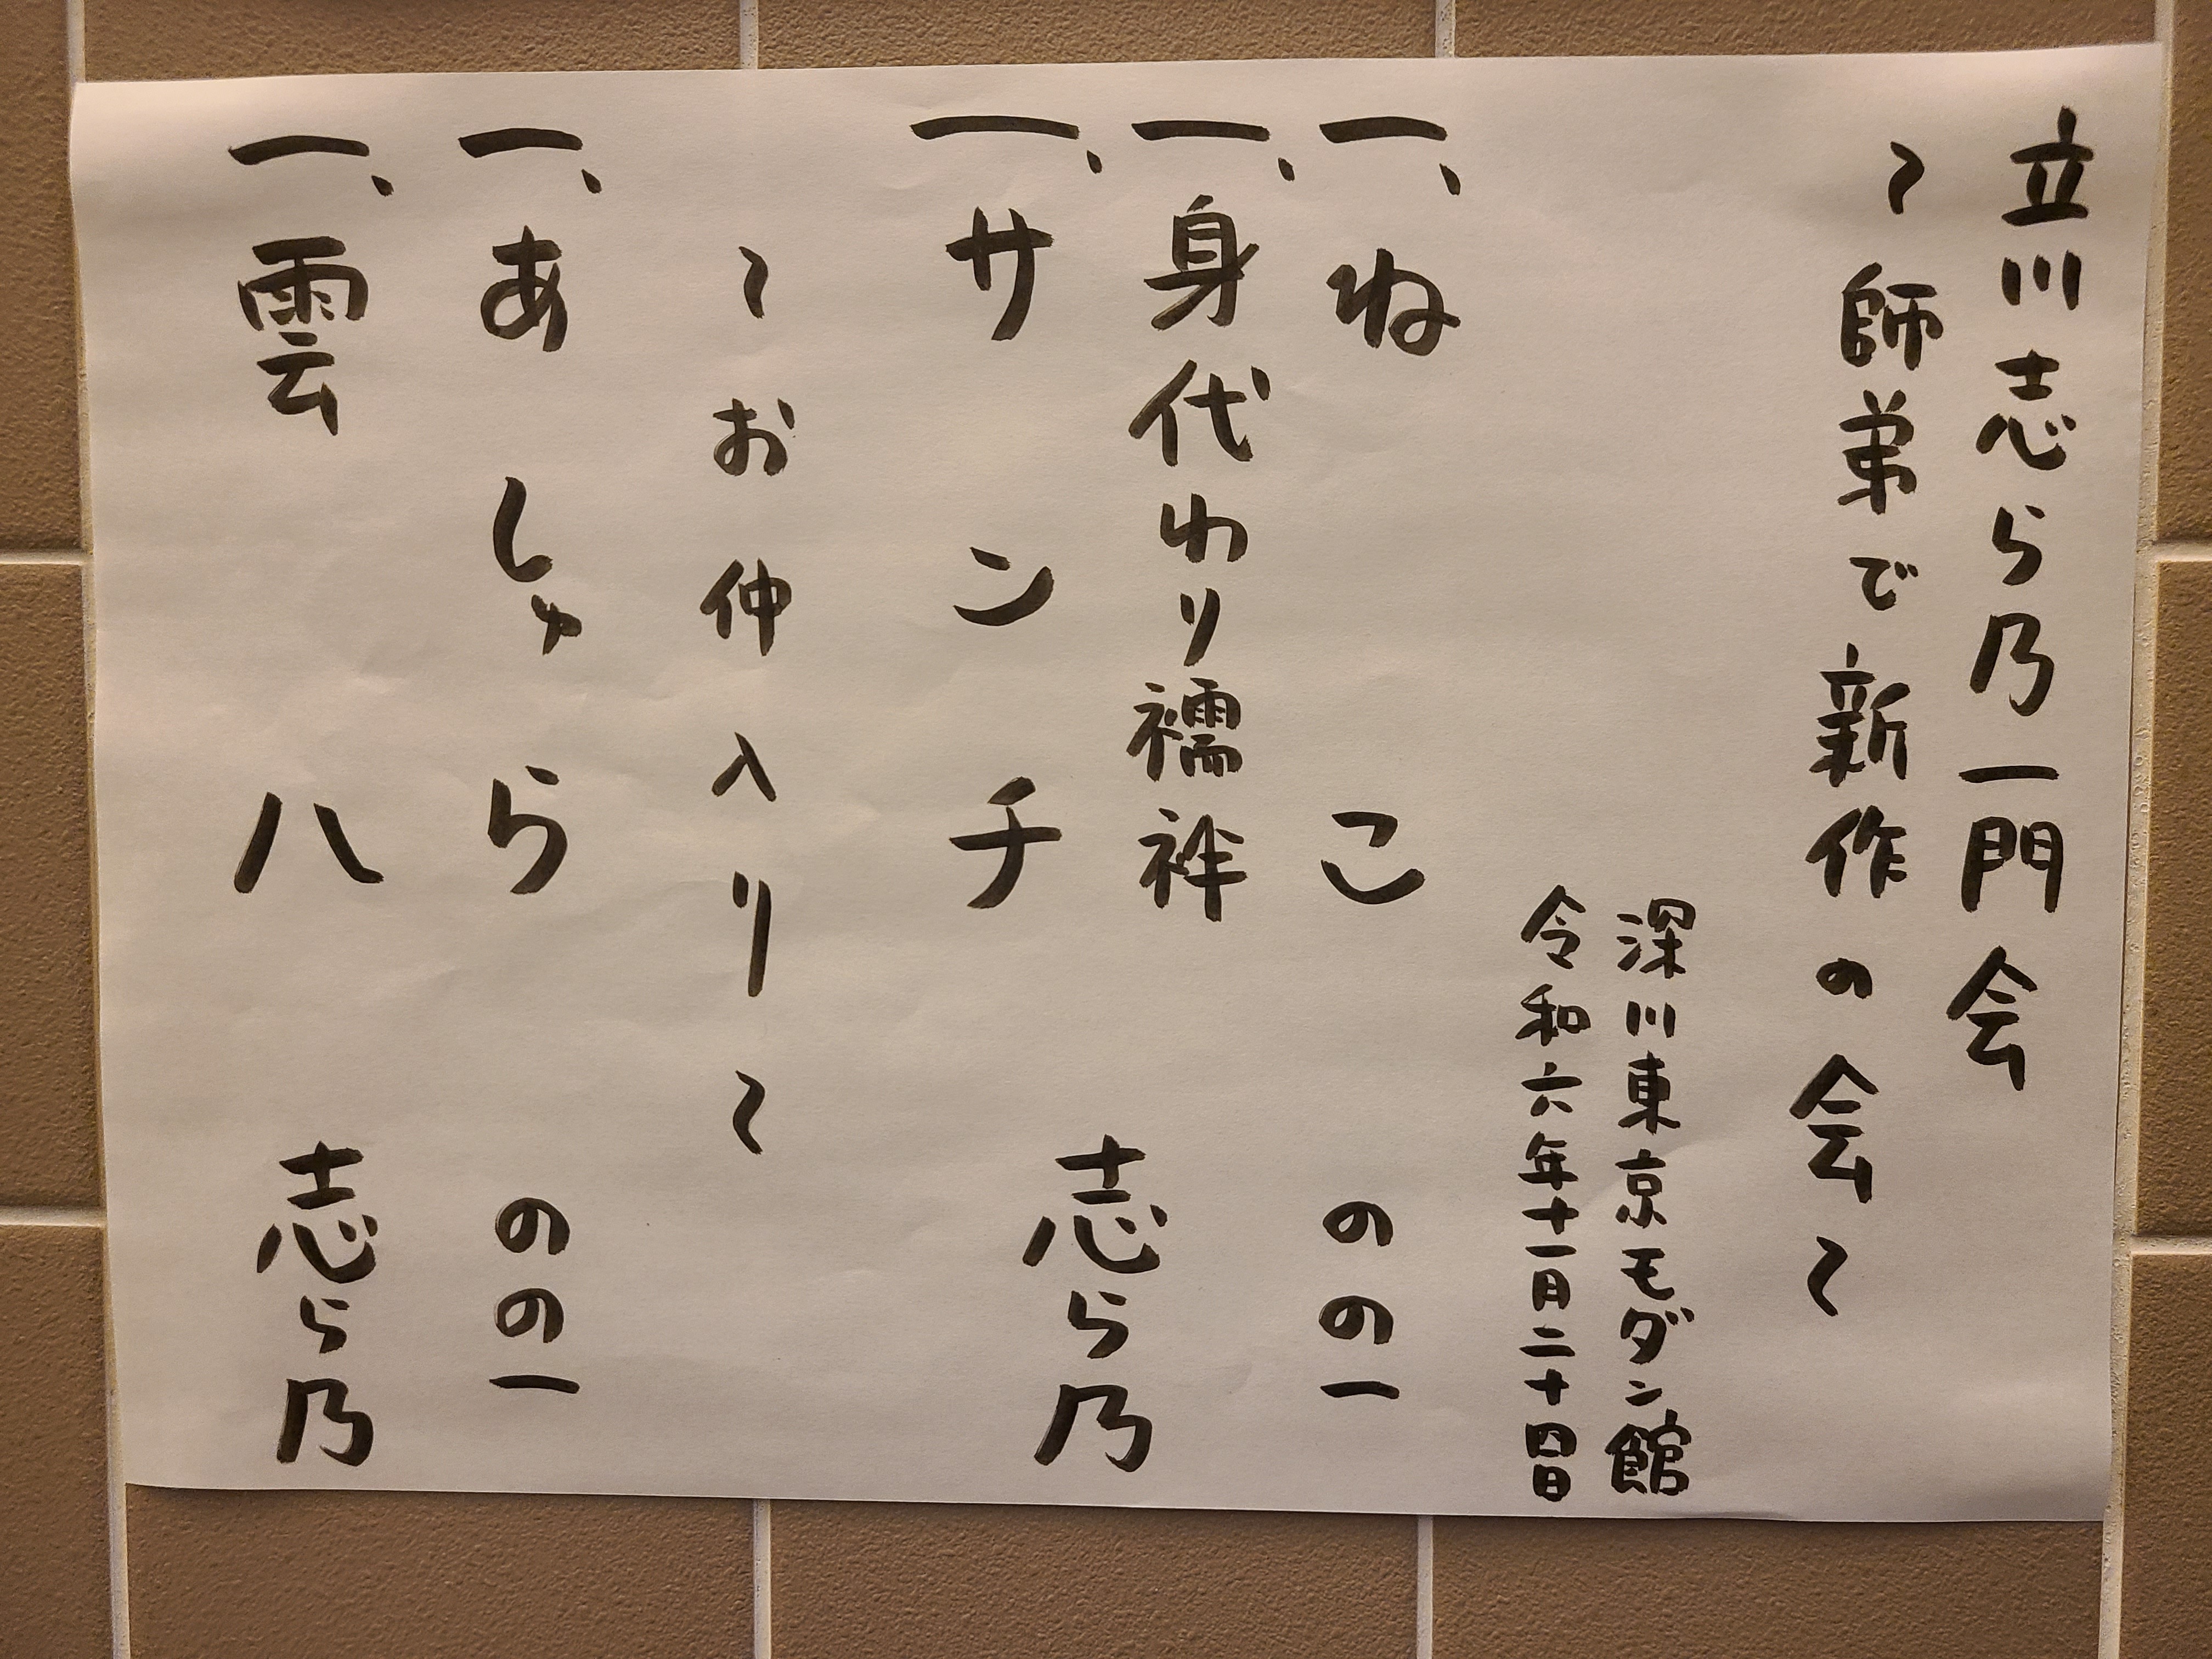 立川志ら乃一門会
〜師弟で新作の会〜
深川東京モダン館
令和六年十一月二十四日
一、ねこ　のの一
一、身代わり襦袢
一、サンチ　志ら乃
〜お仲入り〜
一、あしゅら　のの一
一、雲八　志ら乃